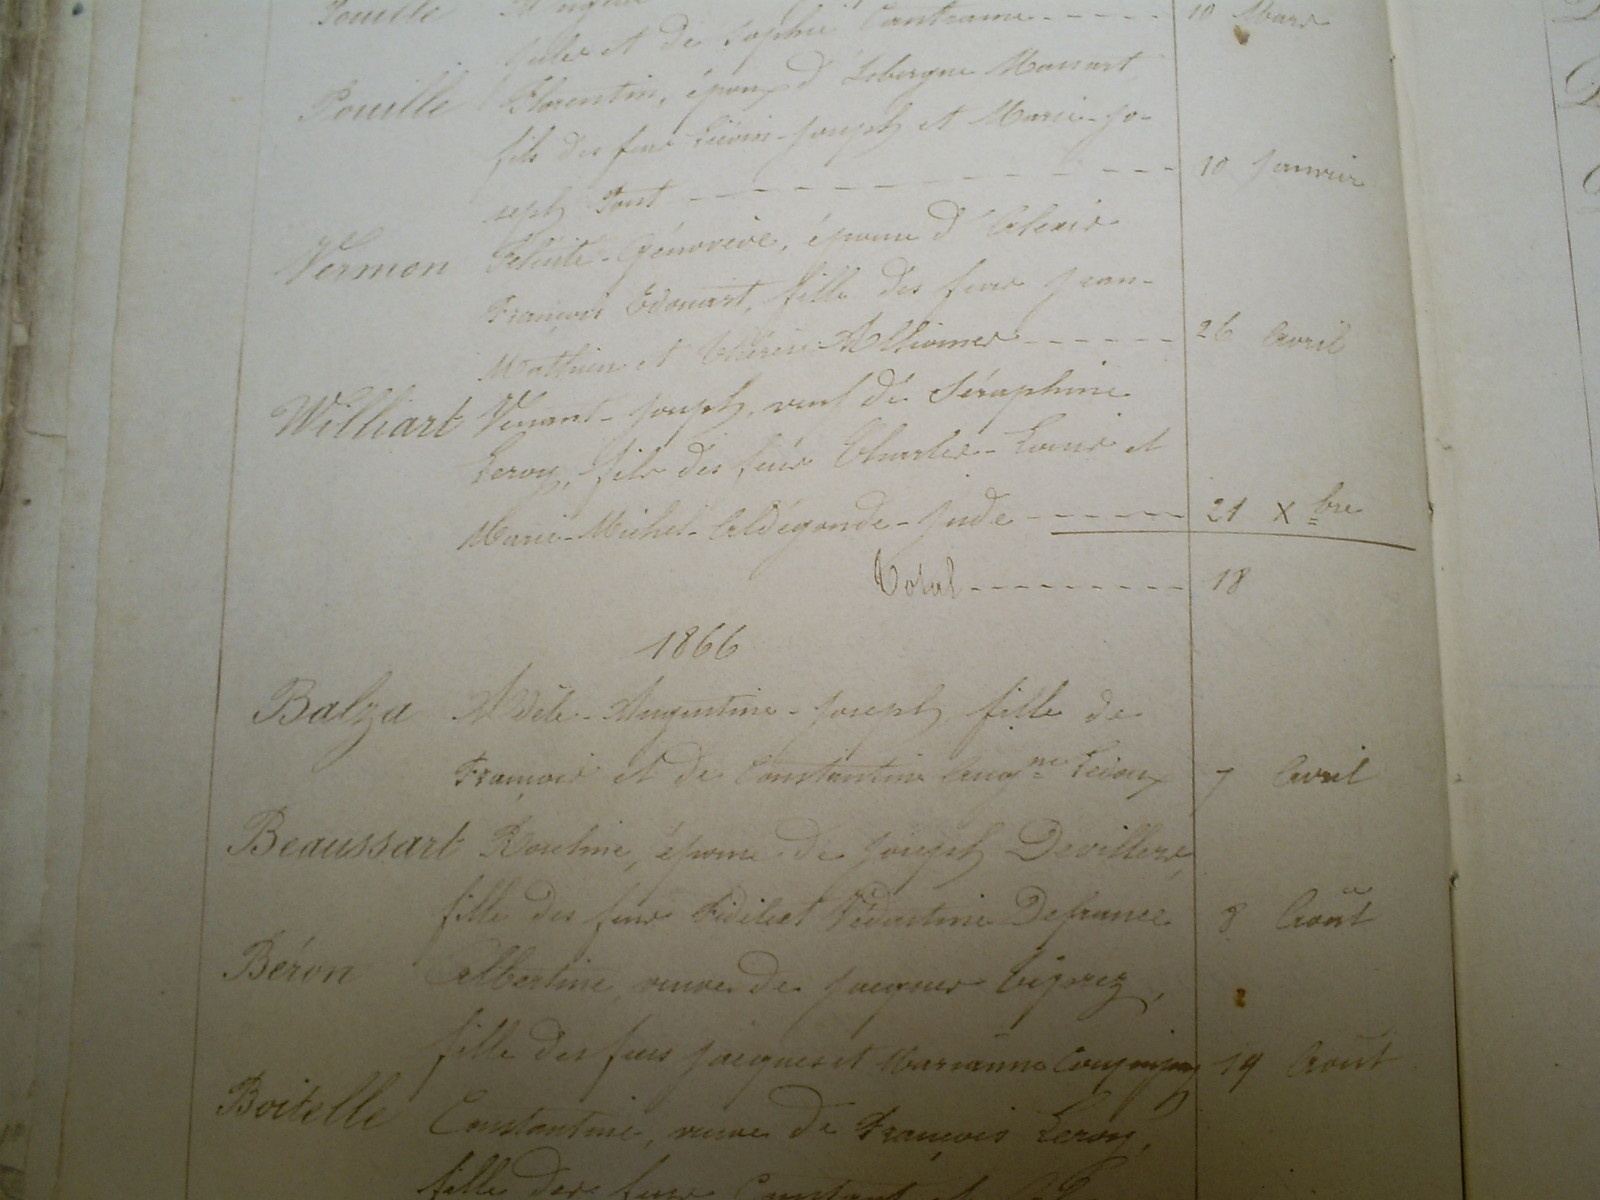 Pouille
filles et de Sophie 10 Mars
Pouille Florentin, époux d' Manart
fils des feus Liévin-Joseph et Marie-Jo-
seph Pont 10 Janvier
Vermon Félicité-Généviève, épouse d'Alexis
François Edouart, fille des feus Jean-
Mathieu et Thérèse 26 Avril
Williart Venant-Joseph, veuf de Séraphine
Leroy, fils des feus Charles-Louis et
Marie-Michel-Aldégonde-Jude 21 Xbre
Total 18
1866
Balza Adèle-Augustine-Joseph fille de
François et de Constantine Augne Ledoux 7 Avril
Beaussart Roseline, épouse de Joseph Devillers,
fille des feus Fidèle et Védastine Defrance 8 Août
Béron Albertine, veuve de Jacques Légrez,
fille des feus Jacques et Marianne 19 Août
Boitelle Constantine, veuve de François Leroy,
fille des feus Constant et